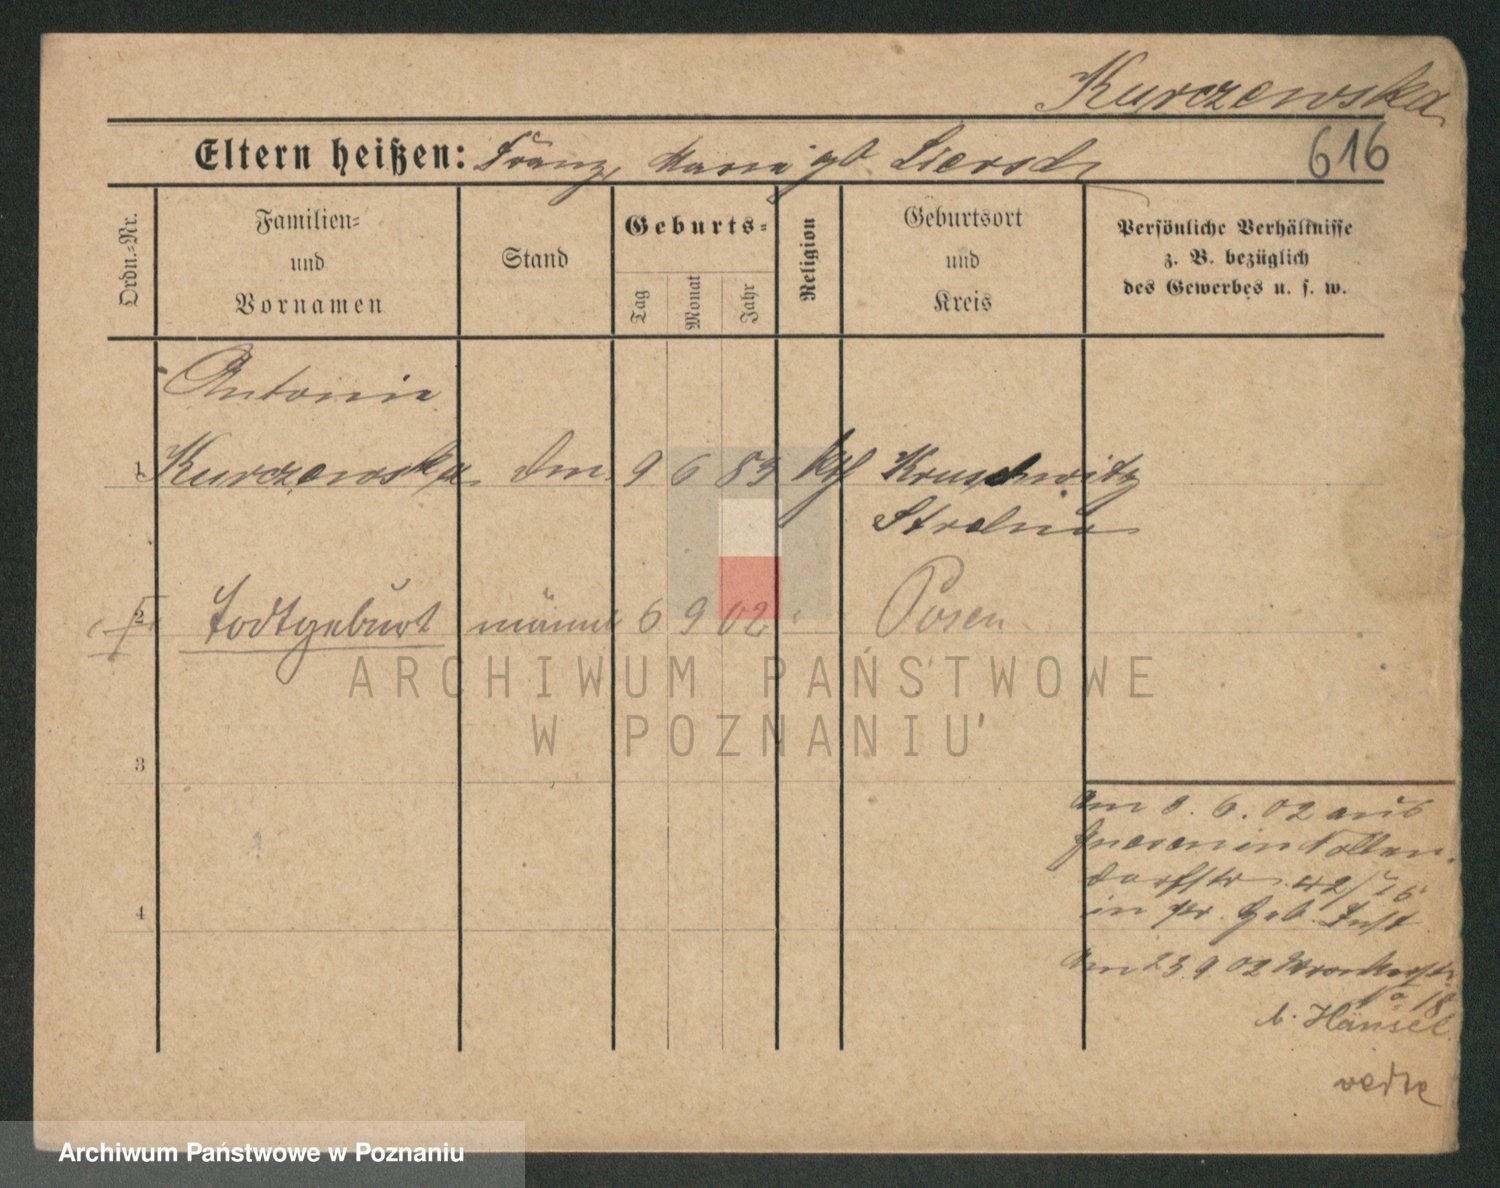 Kurczewska
616
Eltern heißen: Franz, Maria gb Liersch
Ordn.-Nr.
Familien-
und
Vornamen
Stand
Geburts-
Tag
Monat
Jahr
Religion
Geburtsort
und
Kreis
Persönliche Verhältnisse
z. B. bezüglich
des Gewerbes u. s. w.
Antonie
1 Kurczewska 9 6 83 kth Kruschwitz
Strelno
2 Todtgeburt männl 6 9 02 Posen
ARCHIWUM PAŃSTWOWE
W POZNANIU
3
4
Am 8. 6. 02 aus
Gnesen in Nollen-
dorfstr 42/
in pr. Geb. Inst
Am 23 9 02 Wronkerstr
No 18
b. Hänsel
verte
Archiwum Państwowe w Poznaniu